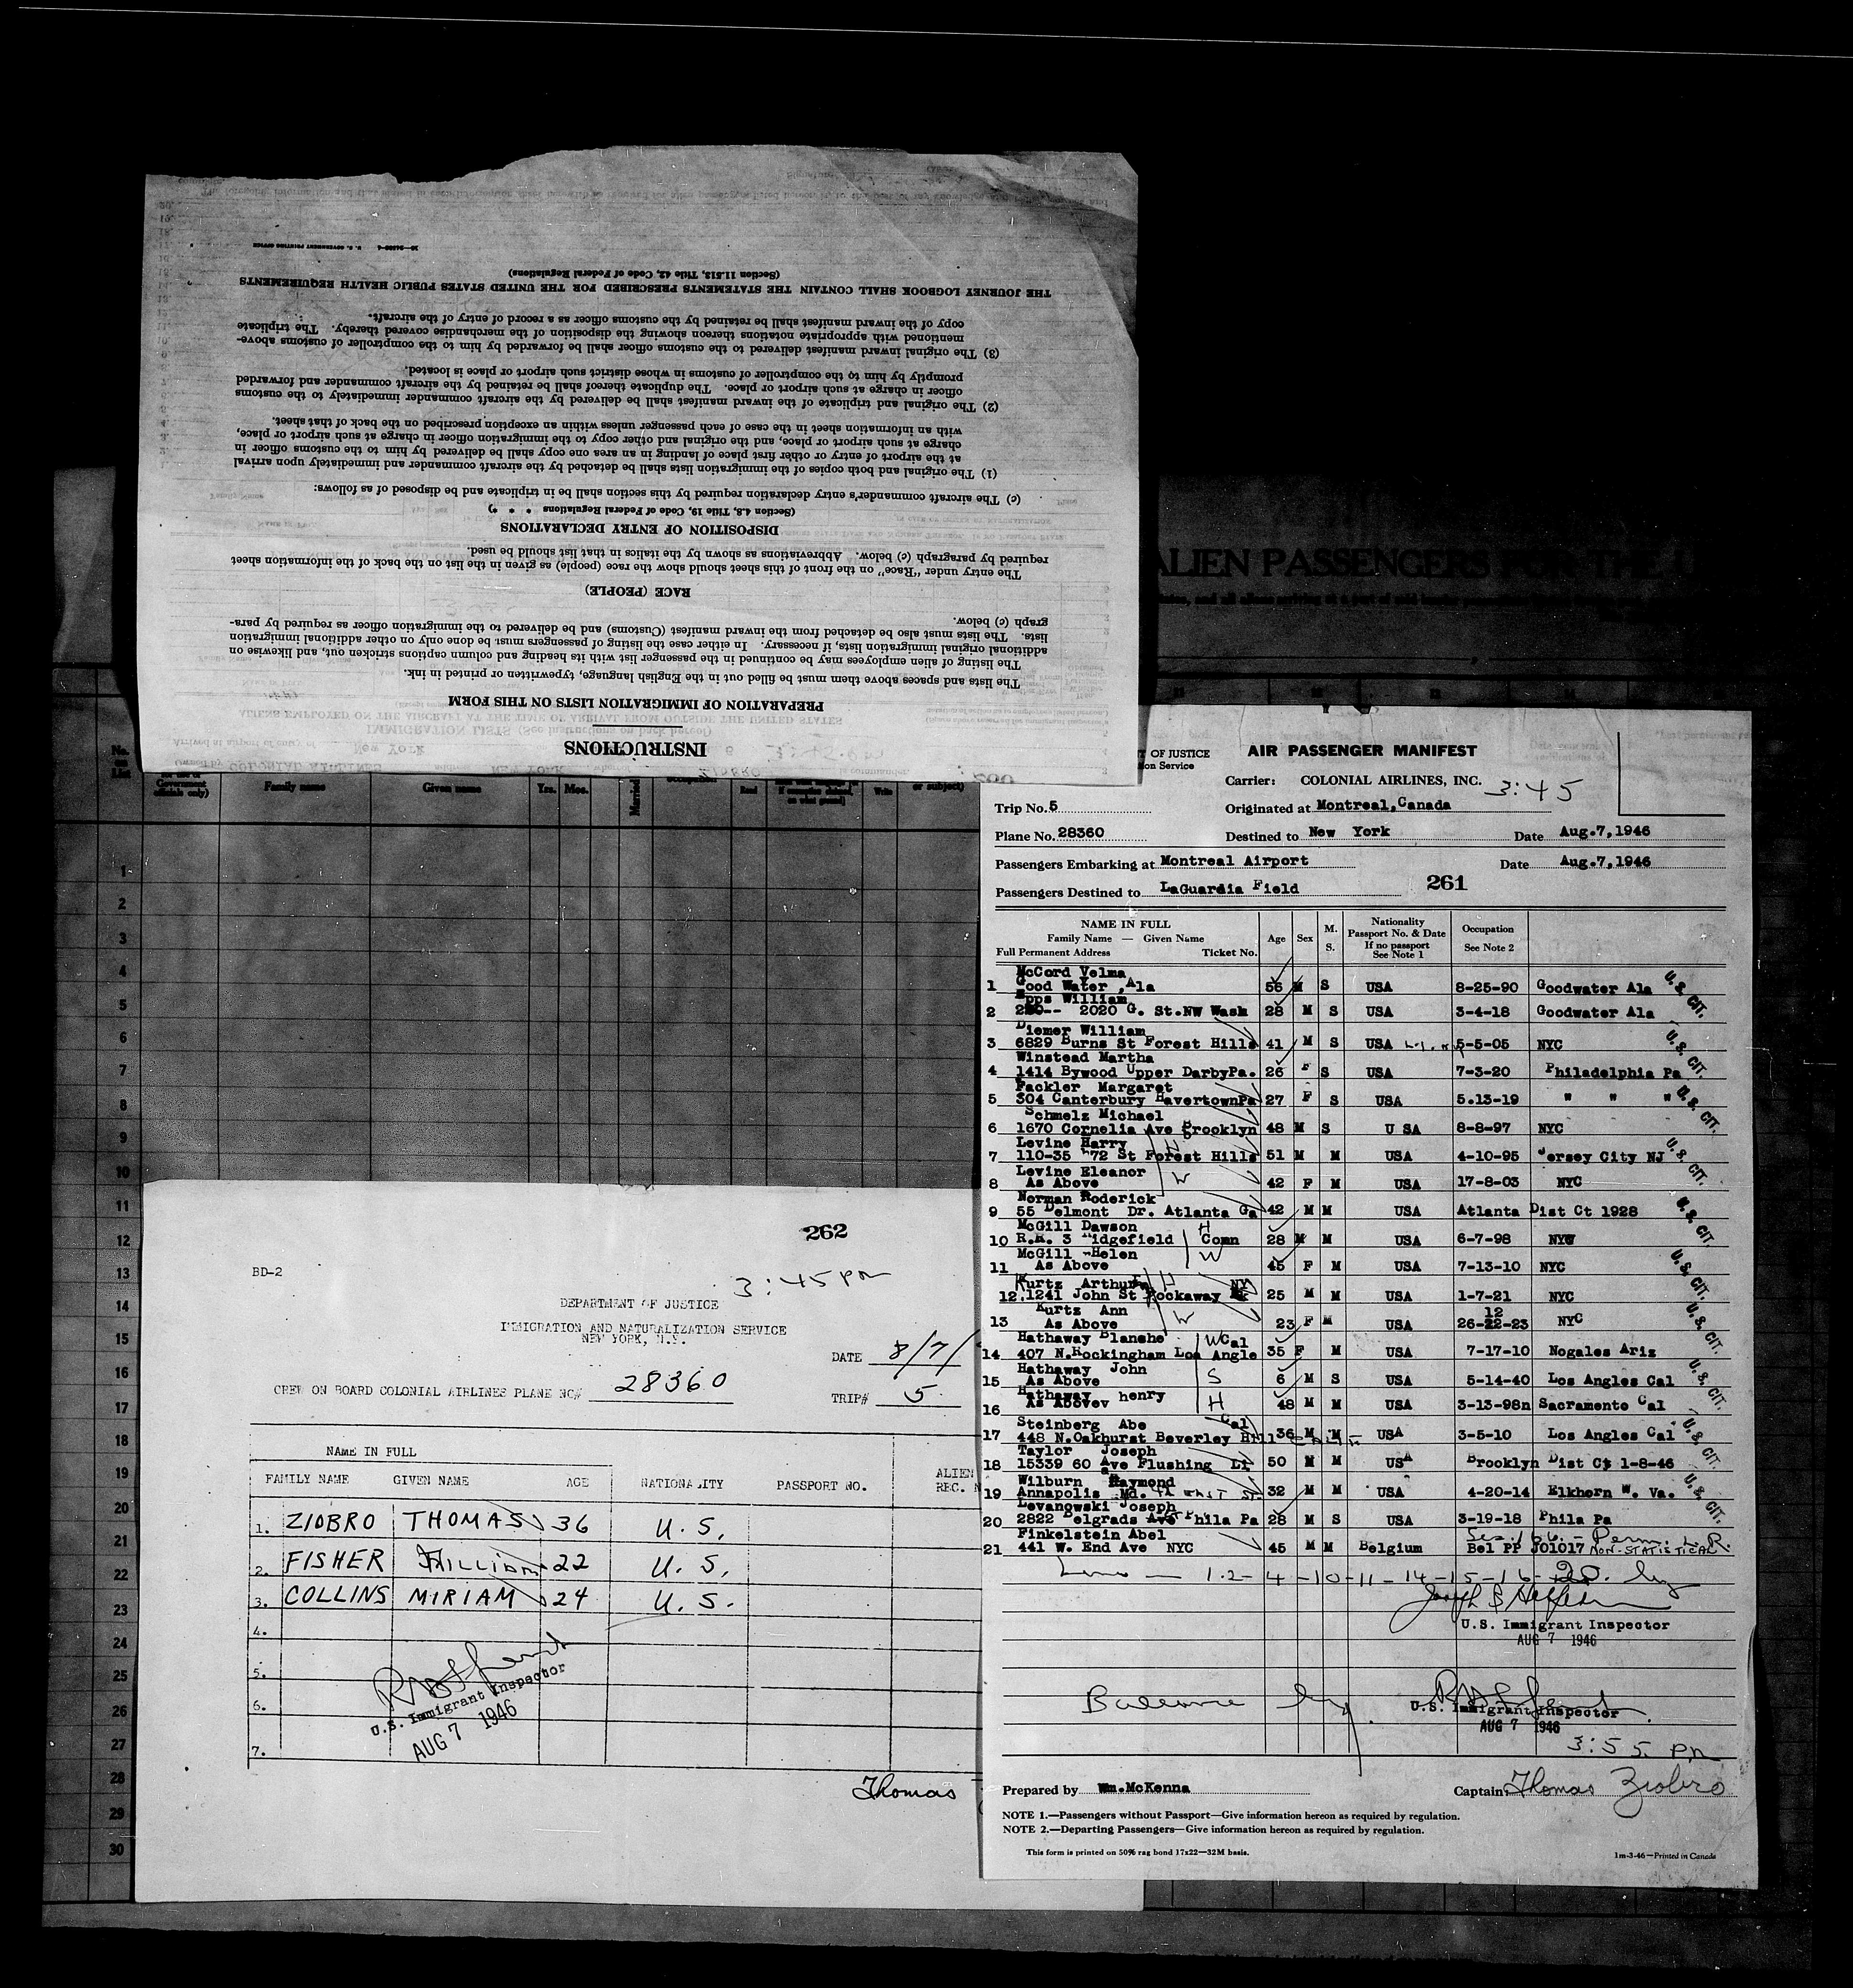 INSTRUCTIONS
PREPARATION OF IMMIGRATION LISTS ON THIS FORM
The lists and spaces above them must be filled out in the English language, typewritten or printed in ink.
The listing of alien employees may be continued in the passenger list with its heading and column captions stricken out, and likewise on
additional original immigration lists, if necessary. In either case the listing of passengers must be done only on other additional immigration
lists. The lists must also be detached from the inward manifest (Customs) and be delivered to the immigration officer as required by para-
graph (c) below.
RACE (PEOPLE)
The entry under "Race" on the front of this sheet should show the race (people) as given in the list on the back of the information sheet
required by paragraph (c) below. Abbreviations as shown by the italics in that list should be used.
DISPOSITION OF ENTRY DECLARATIONS
(Section 4.8, Title 19, Code of Federal Regulations * * *)
(c) The aircraft commander's entry declaration required by this section shall be in triplicate and be disposed of as follows:
(1) The original and both copies of the immigration lists shall be detached by the aircraft commander and immediately upon arrival
at the airport of entry or other first place of landing in an area one copy shall be delivered by him to the customs officer in
charge at such airport or place, and the original and other copy to the immigration officer in charge at such airport or place,
with an information sheet in the case of each passenger unless within an exception prescribed on the back of that sheet.
(2) The original and triplicate of the inward manifest shall be delivered by the aircraft commander immediately to the customs
officer in charge at such airport or place. The duplicate thereof shall be retained by the aircraft commander and forwarded
promptly by him to the comptroller of customs in whose district such airport or place is located.
(3) The original inward manifest delivered to the customs officer shall be forwarded by him to the comptroller of customs above-
mentioned with appropriate notations thereon showing the disposition of the merchandise covered thereby. The triplicate
copy of the inward manifest shall be retained by the customs officer as a record of entry of the aircraft.
THE JOURNEY LOGBOOK SHALL CONTAIN THE STATEMENTS PRESCRIBED FOR THE UNITED STATES PUBLIC HEALTH REQUIREMENTS
(Section 11.513, Title 42, Code of Federal Regulations)
U. S. GOVERNMENT PRINTING OFFICE
ALIEN PASSENGERS
No. on List
Family name Given name Yrs. Mos. Married Read Write or subject)
1
2
3
4
5
6
7
8
9
10
11
12
13
14
15
16
17
18
19
20
21
22
23
24
25
26
27
28
29
30
OF JUSTICE
on Service
AIR PASSENGER MANIFEST
Carrier: COLONIAL AIRLINES, INC. 3:45
Trip No. 5 Originated at Montreal,Canada
Plane No. 28360 Destined to New York Date Aug.7,1946
Passengers Embarking at Montreal Airport Date Aug.7,1946
Passengers Destined to LaGuardia Field 261
NAME IN FULL
Family Name — Given Name
Full Permanent Address Ticket No. Age Sex M. S. Nationality Passport No. & Date If no passport See Note 1 Occupation See Note 2
McCord Velma
1 Good Water ,Ala 56 M S USA 8-25-90 Goodwater Ala U.S. CIT.
Epps William
2 2020 G. St.NW Wash 28 M S USA 3-4-18 Goodwater Ala
Diemer William
3 6829 Burns St Forest Hills 41 M S USA 5-5-05 NYC U.S. CIT.
Winstead Martha
4 1414 Bywood Upper DarbyPa. 26 F S USA 7-3-20 Philadelphia Pa
Fackler Margaret
5 304 Canterbury HavertownPa 27 F S USA 5.13-19 " " " U.S. CIT.
Schmelz Michael
6 1670 Cornelia Ave Brooklyn 48 M S U SA 8-8-97 NYC
Levine Harry H
7 110-35 72 St Forest Hills 51 M M USA 4-10-95 Jersey City NJ U.S. CIT.
Levine Eleanor W
8 As Above 42 F M USA 17-8-03 NYC
Norman Roderick
9 55 Delmont Dr. Atlanta Ga 42 M M USA Atlanta Dist Ct 1928 U.S. CIT.
McGill Dawson H
10 R.R. 3 Ridgefield Conn 28 M M USA 6-7-98 NYC
McGill Helen W
11 As Above 45 F M USA 7-13-10 NYC U.S. CIT.
Kurtz Arthur H NY
12. 1241 John St Rockaway 25 M M USA 1-7-21 NYC
Kurtz Ann W
13 As Above 23 F M USA 26-12-23 NYC U.S. CIT.
Hathaway Blanshe W Cal
14 407 N.Rockingham Los Angle 35 F M USA 7-17-10 Nogales Ariz
Hathaway John S
15 As Above 6 M S USA 5-14-40 Los Angles Cal U.S. CIT.
Hathaway henry H
16 As Abovev 48 M M USA 3-13-98n Sacramento Cal
Steinberg Abe Cal
17 448 N.Oakhurst Beverley Hill 36 M M USA 3-5-10 Los Angles Cal U.S. CIT.
Taylor Joseph
18 15339 60 Ave Flushing Li 50 M M USA Brooklyn Dist Ct 1-8-46
Wilburn Raymond
19 Annapolis Md. 32 M M USA 4-20-14 Elkhorn W. Va. U.S. CIT.
Levanowski Joseph
20 2822 Belgrads Ave Phila Pa 28 M S USA 3-19-18 Phila Pa
Finkelstein Abel
21 441 W. End Ave NYC 45 M M Belgium Bel PP J01017 NON-STATISTICAL Perm. L.R.
Lines — 1-2-4-10-11-14-15-16-20. by
U.S. Immigrant Inspector
AUG 7 1946
Balance by
U.S. Immigrant Inspector
AUG 7 1946
3:55 PM
Prepared by Wm.McKenna Captain Thomas Ziobro
NOTE 1.—Passengers without Passport—Give information hereon as required by regulation.
NOTE 2.—Departing Passengers—Give information hereon as required by regulation.
This form is printed on 50% rag bond 17x22—32M basis. 1m-3-46—Printed in Canada
262
BD-2
3:45 PM
DEPARTMENT OF JUSTICE
IMMIGRATION AND NATURALIZATION SERVICE
NEW YORK, N.Y.
DATE 8/7/
CREW ON BOARD COLONIAL AIRLINES PLANE NO# 28360 TRIP# 5
NAME IN FULL
FAMILY NAME GIVEN NAME AGE NATIONALITY PASSPORT NO. ALIEN REC. N
1. ZIOBRO THOMAS 36 U.S.
2. FISHER WILLIAM 22 U.S.
3. COLLINS MIRIAM 24 U.S.
4.
5.
6.
7.
U.S. Immigrant Inspector
AUG 7 1946
Thomas